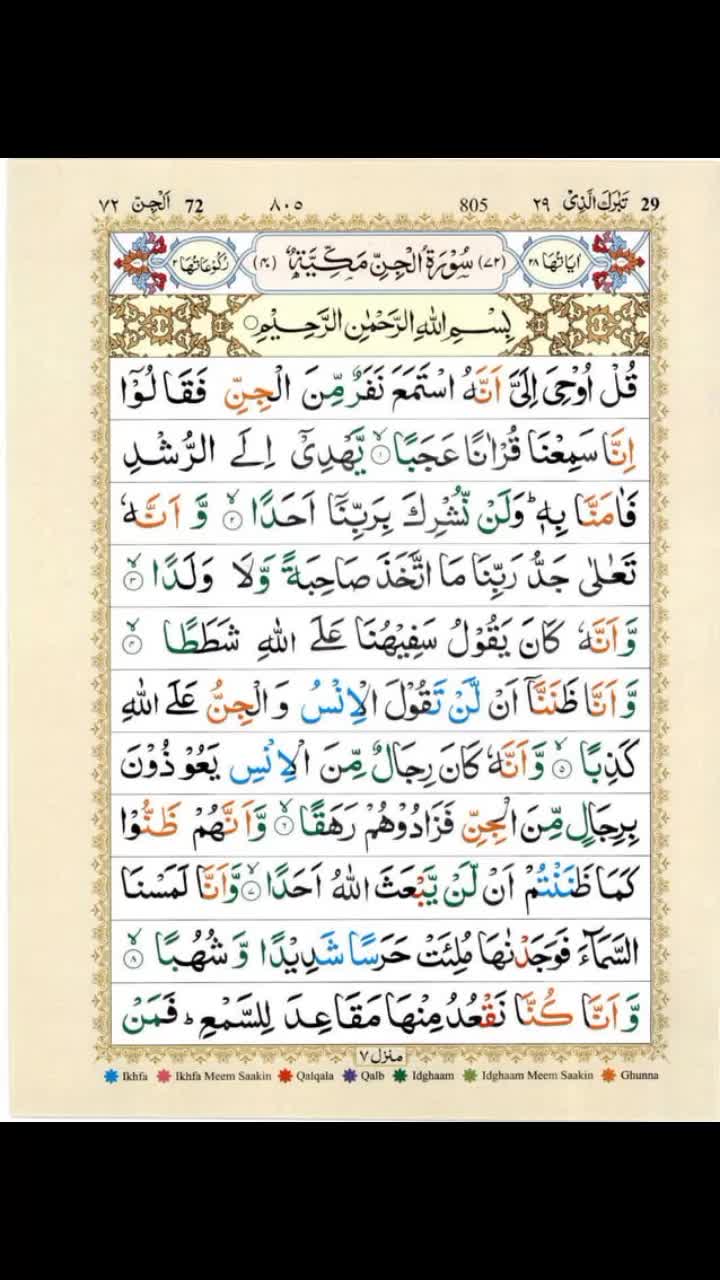 29 تَبٰرَكَ الَّذِیْ ٢٩ 805 ٨٠٥ 72 اَلْجِنّ ٧٢
اٰیَاتُهَا ٢٨ (٧٢) سُوْرَةُ الْجِنِّ مَكِّیَّةٌ (٤٠) رُكُوْعَاتُهَا ٢
بِسْمِ اللّٰهِ الرَّحْمٰنِ الرَّحِیْمِ
قُلْ اُوْحِیَ اِلَیَّ اَنَّهُ اسْتَمَعَ نَفَرٌ مِّنَ الْجِنِّ فَقَالُوْۤا
اِنَّا سَمِعْنَا قُرْاٰنًا عَجَبًا ۙ‏﴿١﴾ یَّهْدِیْۤ اِلَی الرُّشْدِ
فَاٰمَنَّا بِهٖ ؕ وَلَنْ نُّشْرِكَ بِرَبِّنَاۤ اَحَدًا ۙ‏﴿٢﴾ وَّ اَنَّهٗ
تَعٰلٰی جَدُّ رَبِّنَا مَا اتَّخَذَ صَاحِبَةً وَّلَا وَلَدًا ۙ‏﴿٣﴾
وَّاَنَّهٗ كَانَ یَقُوْلُ سَفِیْهُنَا عَلَی اللّٰهِ شَطَطًا ۙ‏﴿٤﴾
وَّاَنَّا ظَنَنَّاۤ اَنْ لَّنْ تَقُوْلَ الْاِنْسُ وَالْجِنُّ عَلَی اللّٰهِ
كَذِبًا ۙ‏﴿٥﴾ وَّاَنَّهٗ كَانَ رِجَالٌ مِّنَ الْاِنْسِ یَعُوْذُوْنَ
بِرِجَالٍ مِّنَ الْجِنِّ فَزَادُوْهُمْ رَهَقًا ۙ‏﴿٦﴾ وَّاَنَّهُمْ ظَنُّوْا
كَمَا ظَنَنْتُمْ اَنْ لَّنْ یَّبْعَثَ اللّٰهُ اَحَدًا ۙ‏﴿٧﴾ وَّاَنَّا لَمَسْنَا
السَّمَآءَ فَوَجَدْنٰهَا مُلِئَتْ حَرَسًا شَدِیْدًا وَّشُهُبًا ۙ‏﴿٨﴾
وَّاَنَّا كُنَّا نَقْعُدُ مِنْهَا مَقَاعِدَ لِلسَّمْعِ ؕ فَمَنْ
منزل ٧
Ikhfa Ikhfa Meem Saakin Qalqala Qalb Idghaam Idghaam Meem Saakin Ghunna